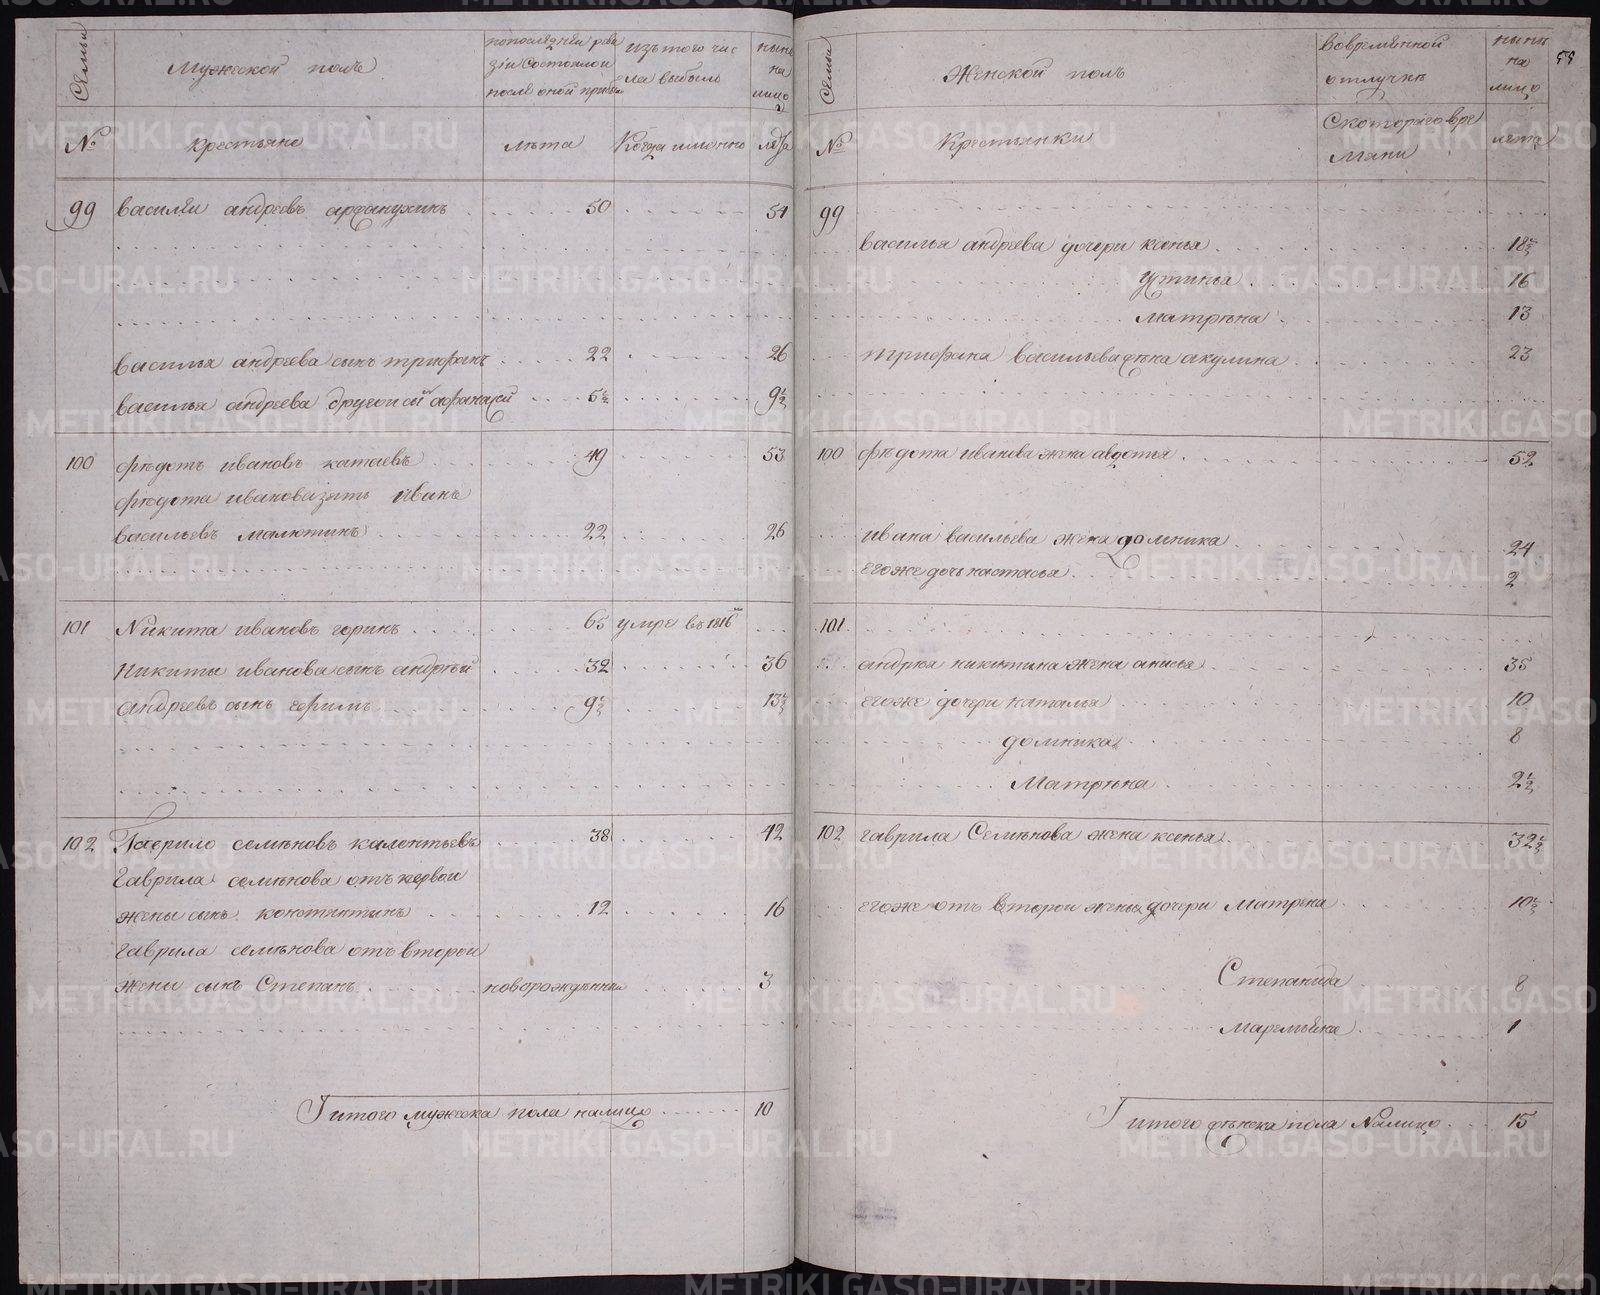 Семьи
Мужеской полъ
попоследнеи реви
зiи Состояло и
после оной прибы
изътого чис
ла выбыло
ныне
на
лицо
№
Крестьяне
лѣта
Когда имянно
лѣта
99 василеи андреевъ арфанухинъ 50 54
василья андреева сынъ трифанъ 22 26
василья андреева другои сынъ афанасей 5½ 9½
100 федотъ ивановъ катаевъ 49 53
федота иванова зять иванъ
васильевъ малютинъ 22 26
101 Никита ивановъ горинъ 65 умре въ 1816
Никиты иванова сынъ андрей 36
32
андреевъ сынъ ефимъ 9½ 13½
102 Гаврило семеновъ калентьевъ 38 42
Гаврила семенова отъ первои
жены сынъ константинъ 12 16
гаврила семенова отъ второи
жены сынъ Степанъ новорожденная 3
И итого мужеска пола налицо 10
55
Семьи
Женской полъ
вовременной
отлучке
ныне
на
лицо
№
Крестьянки
Скотораго вре
мани
лѣта
99
василья андреева дочери ксенья 18½
Устинья 16
матрена 13
трифана васильева жена акулина 23
100 федота иванова жена авдотья 52
ивана васильева жена домника 24
егоже дочь настасья 2
101
андрея никитина жена анисья 35
егоже дочери наталья 10
домника 8
Матрена 2½
102 гаврила Семенова жена ксенья 32½
егоже отъ второи жены дочери Матрена 10½
Степанида 8
маремьяна 1
И итого женска пола Налицо 15
METRIKI.GASO-URAL.RU